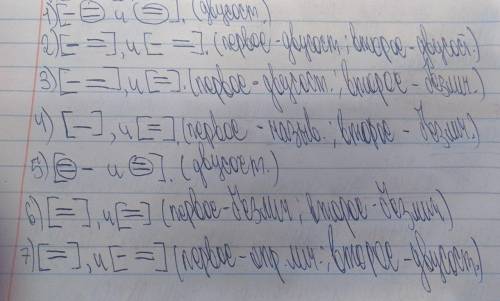 1) [– ⊜ и ⊜]. (двусост.)
2) [– =], и [– =]. (первое - двусост.; второе - двусост.)
3) [– =], и [=]. (первое - двусост.; второе - безлич.)
4) [–], и [=]. (первое - назыв.; второе - безлич.)
5) [⊜ – и ⊜]. (двусост.)
6) [=], и [=] (первое - безлич.; второе - безлич)
7) [=], и [– =] (первое - опр. лич.; второе - двусост.)